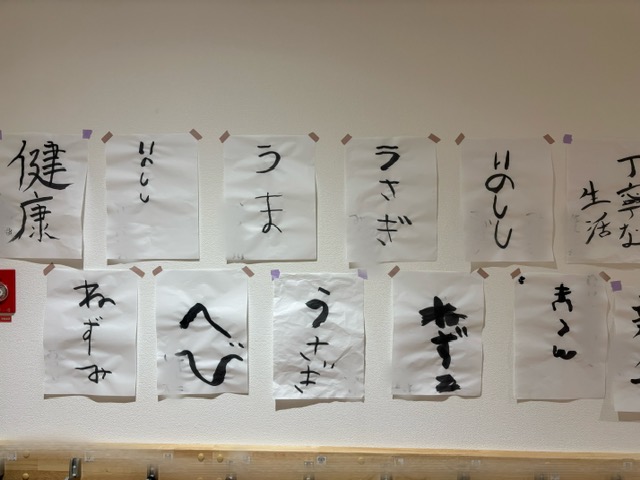 健康
いのしし
うま
うさぎ
いのしし
丁寧な
生活
ねずみ
へび
うさぎ
ねずみ